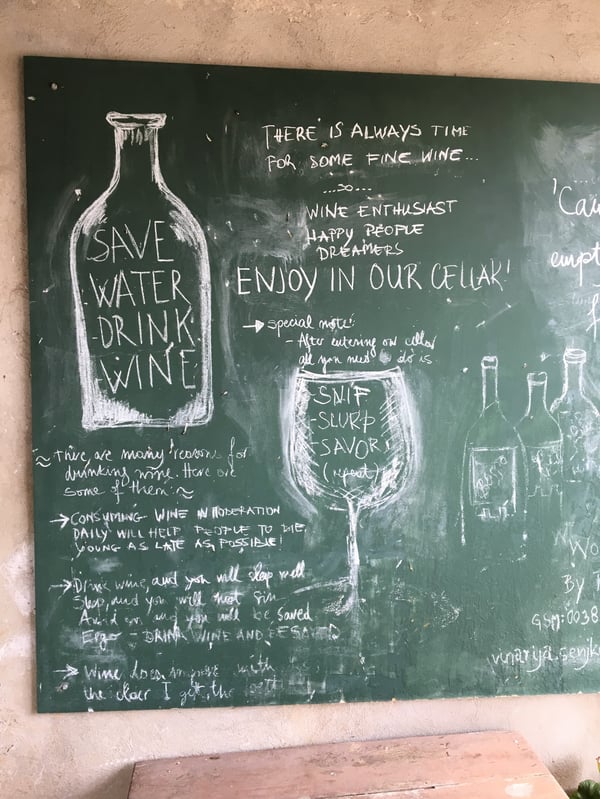 THERE IS ALWAYS TIME
FOR SOME FINE WINE...
WINE ENTHUSIAST
HAPPY PEOPLE
DREAMERS
ENJOY IN OUR CELLAR!
SAVE
WATER
DRINK
WINE
→ special note:
- After entering our cellar
all you need to do is
SNIF
-SLURP
-SAVOR
(repeat)
~ There are many reasons for
drinking wine. Here are
some of them: ~
→ CONSUMING WINE IN MODERATION
DAILY WILL HELP PEOPLE TO DIE
YOUNG AS LATE AS POSSIBLE!
→ Drink wine, and you will sleep well
Sleep, and you will not sin
Avoid sin, and you will be saved
Ergo - DRINK WINE AND BE SAVED
→ Wine does improve with
the older I get, the
'Cau
empt
f
Wo
By
GSM: 0038
vinarija.senjk